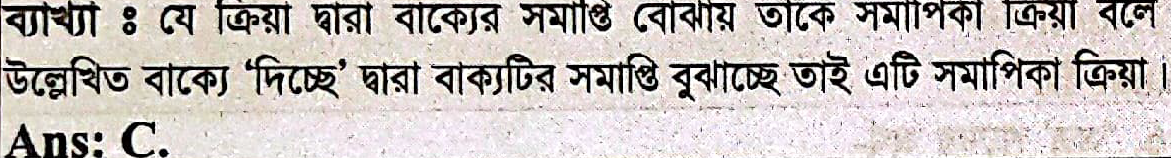 ব্যাখ্যা ঃ যে ক্রিয়া দ্বারা বাক্যের সমাপ্তি বোঝায় তাকে সমাপিকা ক্রিয়া বলে
উল্লেখিত বাক্যে ‘দিচ্ছে’ দ্বারা বাক্যটির সমাপ্তি বুঝাচ্ছে তাই এটি সমাপিকা ক্রিয়া।
Ans: C.